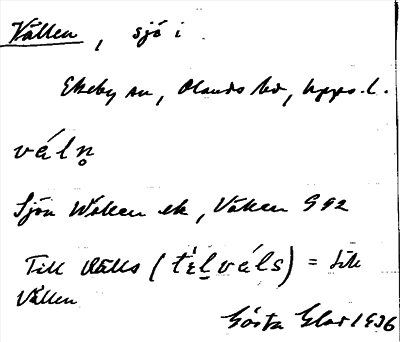 Vällen, sjö i
Ekeby sn, Olands hd, Upps. l.
váln̥
Sjön Wällen ek, Vällen G 92
Till Välls (tèl váls) =
Vällen
Gösta 1936